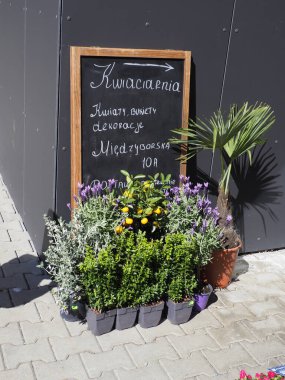 Kwiaciarnia
Kwiaty, bukiety
dekoracje
Międzyborska
10A